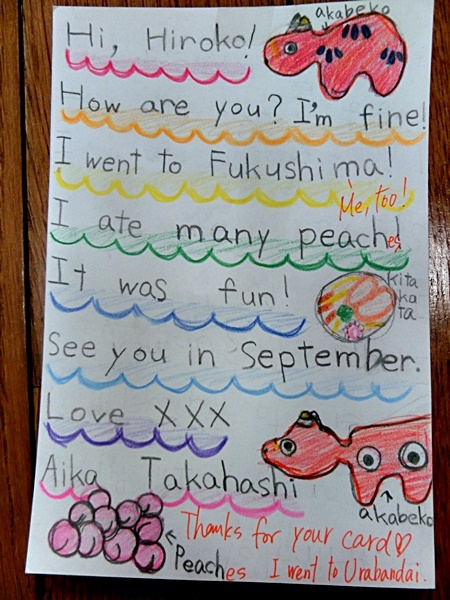 akabeko
Hi, Hiroko!
How are you? I'm fine!
I went to Fukushima!
Me, too!
I ate many peaches
It was fun!
kita
ka
ta
See you in September.
Love XXX
Aika Takahashi
akabeko
Thanks for your card♡
Peaches
I went to Urabandai.